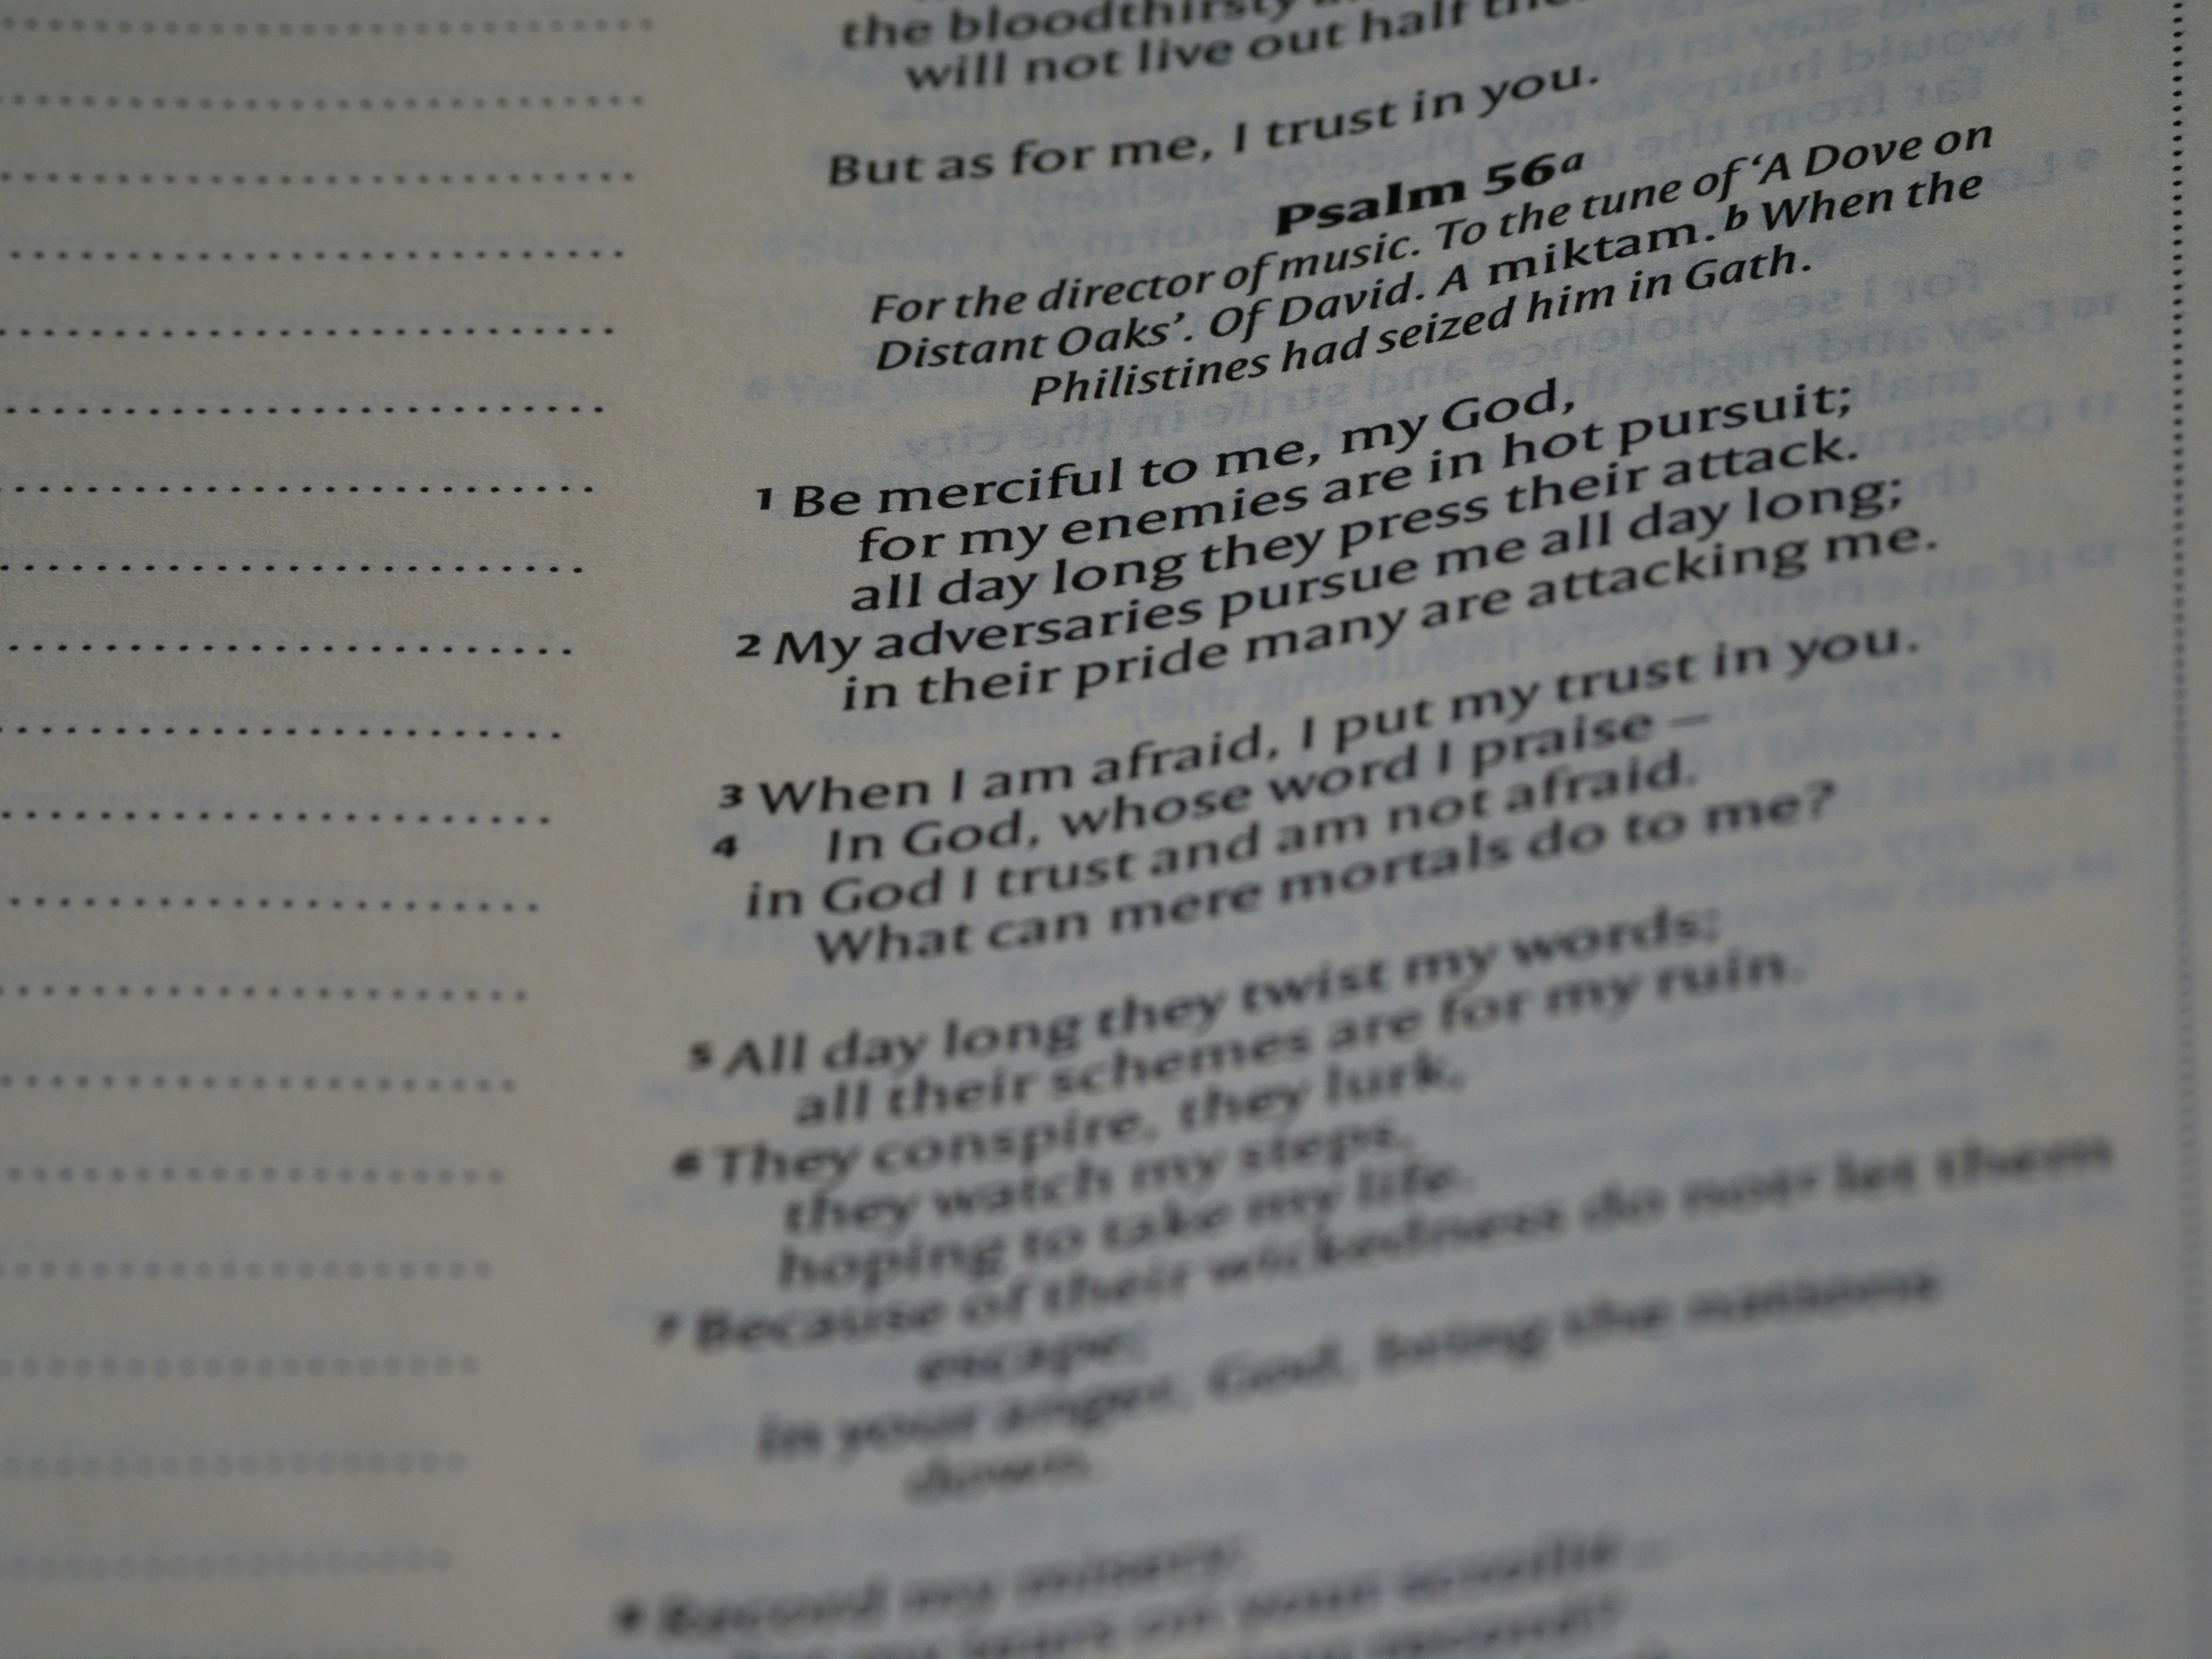 the bloodthirsty
will not live out half
But as for me, I trust in you.
Psalm 56ª
For the director of music. To the tune of ‘A Dove on
Distant Oaks’. Of David. A miktam.ᵇ When the
Philistines had seized him in Gath.
1 Be merciful to me, my God,
for my enemies are in hot pursuit;
all day long they press their attack.
2 My adversaries pursue me all day long;
in their pride many are attacking me.
3 When I am afraid, I put my trust in you.
4 In God, whose word I praise –
in God I trust and am not afraid.
What can mere mortals do to me?
5 All day long they twist my words;
all their schemes are for my ruin.
6 They conspire, they lurk,
they watch my steps,
hoping to take my life.
7 Because of their wickedness do not let them
escape;
in your anger, God, bring the nations
down.
8 Record my misery;